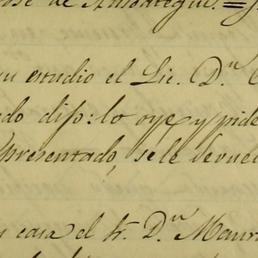 José de Amoátegui.=J
su estudio el Lic. Dⁿ
do dijo: lo oye y pide
presentado, se le devuel
y casa el Sr. Dⁿ Mauri